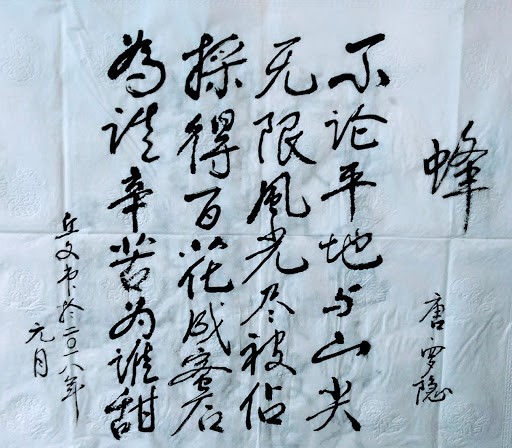 蜂
唐 罗隐
不论平地与山尖
无限風光尽被佔
採得百花成蜜后
為谁辛苦为谁甜
丘文书於二〇一八年
元月